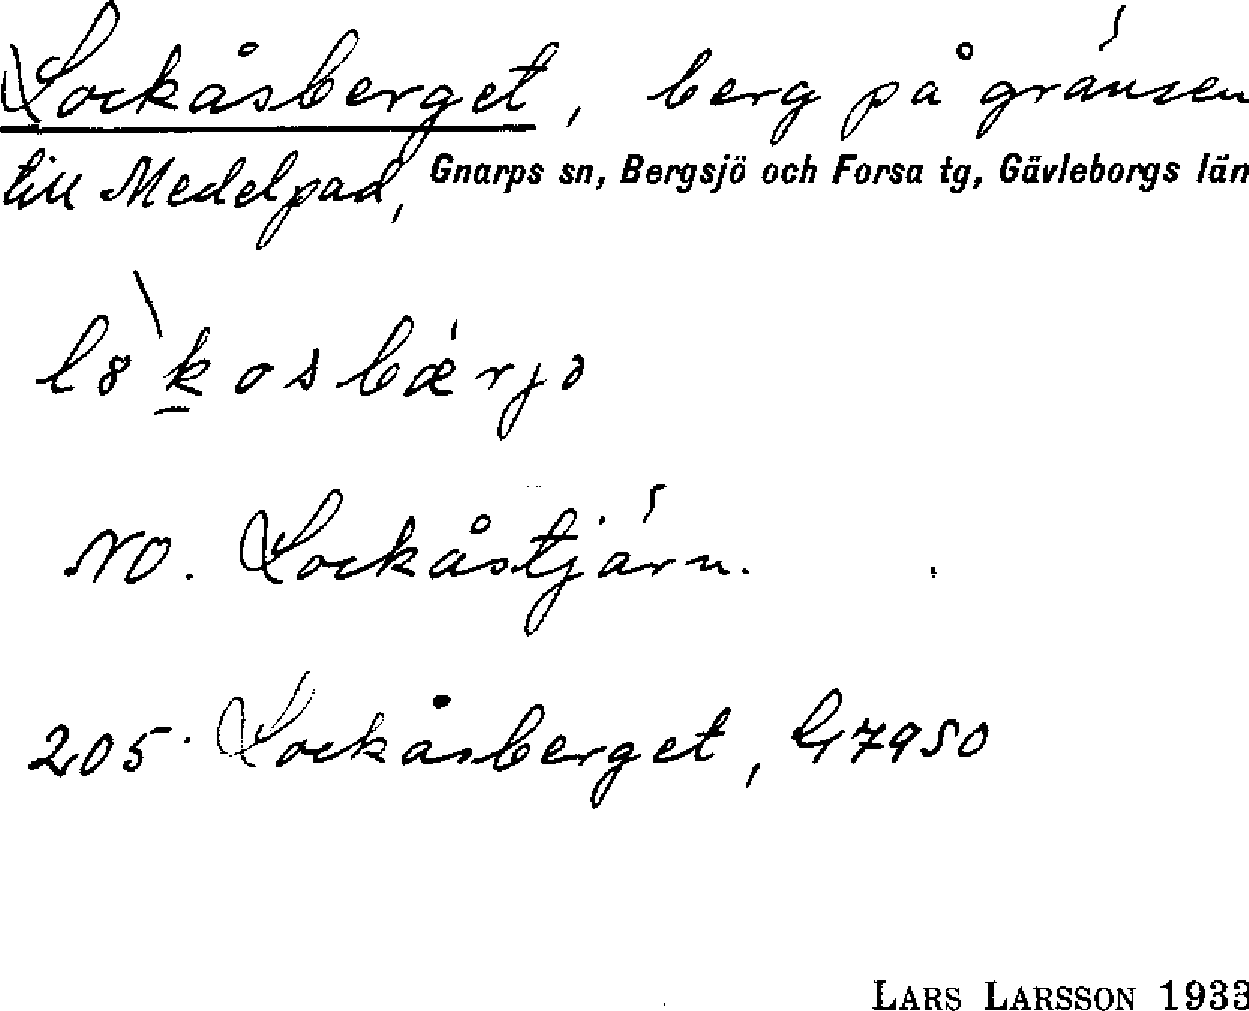 Lockåsberget, berg på gränsen
till Medelpad, Gnarps sn, Bergsjö och Forsa tg, Gävleborgs län
NO. Lockåstjärn.
205. Lockåsberget, G7950
LARS LARSSON 1933